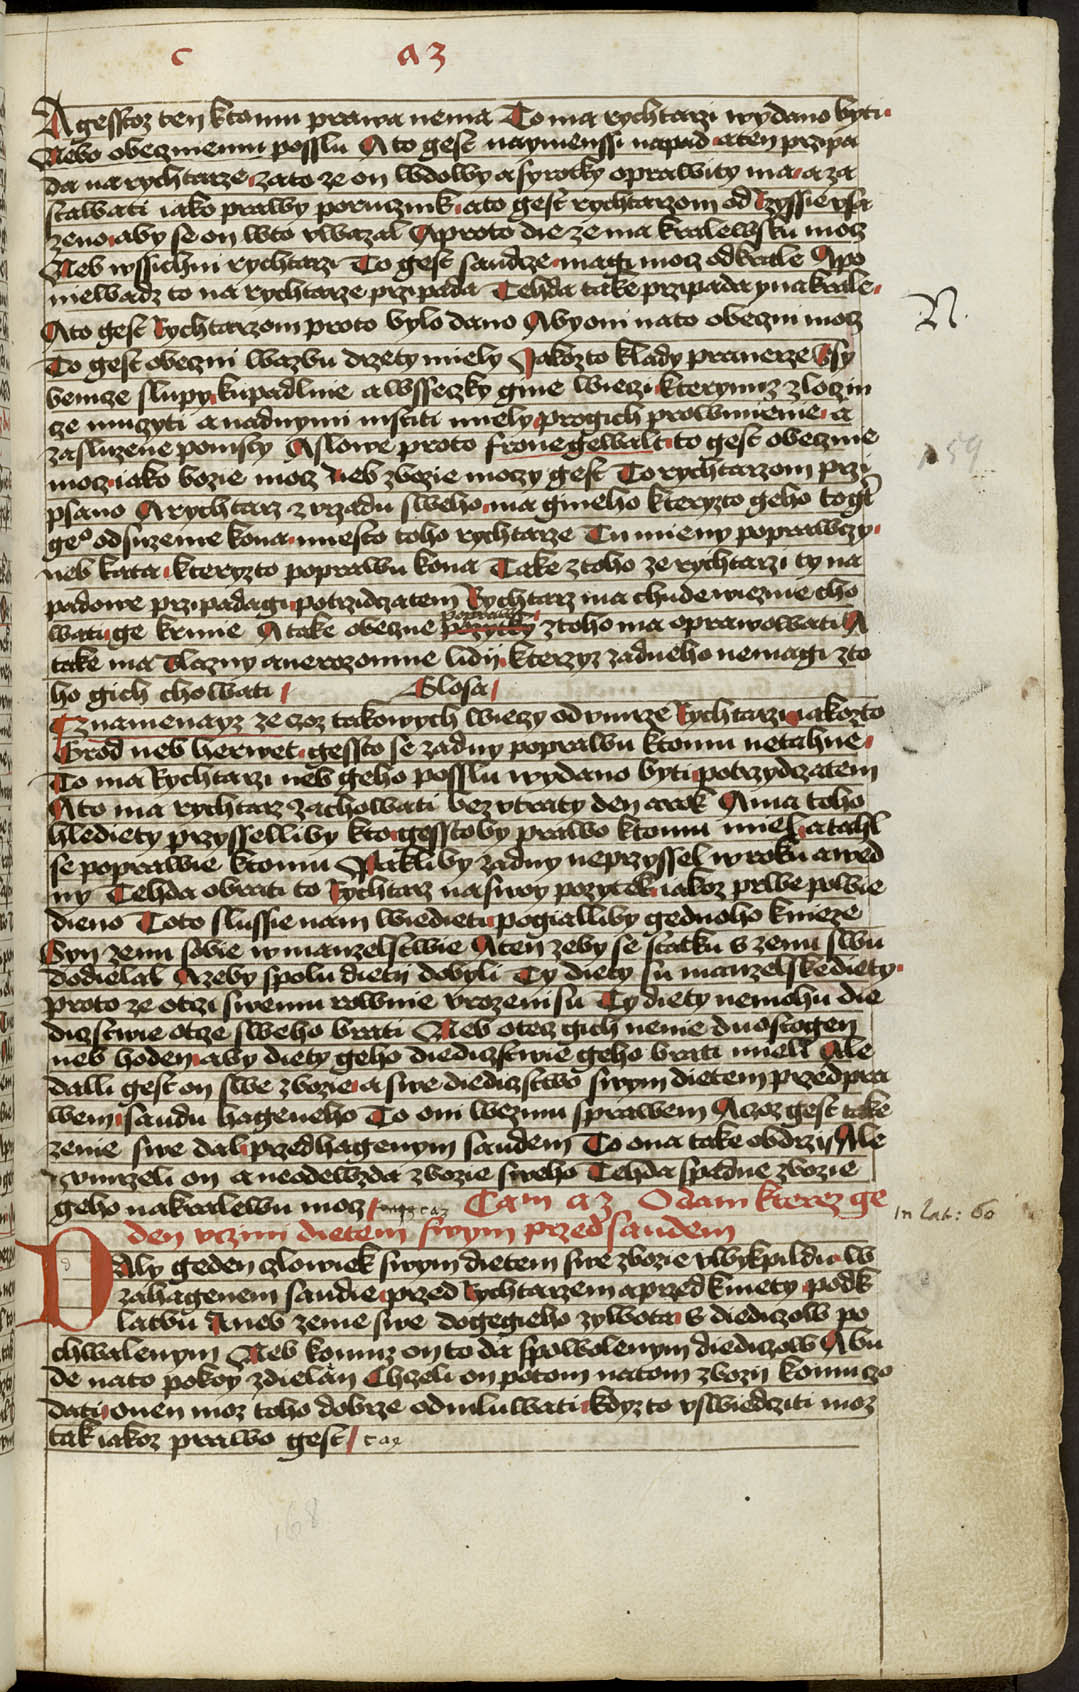 c a3
A gesstoz ten k tomu prawa nema To ma rychtarzi wydano byti
Nebo obecznemu posslu A to gest naymenssi napad a ten przipa
da na rychtarze zato ze on wdowy a syrotky oprawity ma a za
stawati iako prawy porucznik ato gest rychtarzom od Rzyssie vsa
zeno aby se on wto vwazal A proto die ze ma kralewsku mocz
Neb wssichni rychtarzi To gest saudcze magi mocz od krale A po
niewadz to na rychtarze przipada Tehda take przipada y na krale
A to gest Rychtarzom proto bylo dano Aby oni na to obeczni mocz
To gest obeczni wazbu drzety miely Jakozto klady pranerze
benicze slupy kupadlnie a wsseczky gine wieczi kterymiz zloczin
cze mucziti a nad nymi mstiti miely pro gich prowinienie a
zasluzene pomsty A slowe proto fronegewalt to gest obeczne
mocz iako bozie mocz neb z bozie moczy gest To rychtarzom przi
psano A rychtarz z vrzadu sweho ma gineho kteryzto geho to gt
geo odsuzenie kona miesto toho rychtarze Tu mieny poprawczy
neb kata kteryzto poprawu kona Take z toho ze rychtarzi ty na
padowe przipadagi potrzidczatem Rychtarz ma chude wieznie cho
wati ge krmie A take obeczne poprawy z toho ma oprawowati A
take ma blazny a nerozomne lidij kterzyz zadneho nemagi z to
ho gich chowati Glosa
Znamenayz ze czoz takowych wieczy od vmrze Rychtarzi iakozto
Grod neb herwet gessto se zadny poprawu k tomu netahne
To ma Rychtarzi neb geho posslu wydano byti potrzydczatem
A to ma rychtarz zachowati bez vtraty den a rok A ma toho
hlediety przysselliby kto gesstoby prawo k tomu miel a tahl
se poprawie k tomu Pakliby zadny neprzyssel w roku a we d
ny Tehda obrati to Rychtarz na swoy pozytek iakoz prwe powie
dieno Toto slussie nam wiedieti pogialliby gednoho knieze
Syn zenu sobie w manzelstwie A ten zeby se statku s zenu swu
dodielal A zeby spolu dietij dobyli Ty diety su manzelske diety
proto ze otczi swemu rownie vrozeni su Ty diety nemohu die
dicztwie otcze sweho brati Neb otecz gich nenie duostogen
neb hoden aby diety geho diedicztwie geho brati mieli Ale
dalli gest on swe zbozie a swe diedicztwo swym dietem przed pra
wem saudu hageneho To oni wezmu sprawem A czoz gest take
zenie swe dal przed hagenym saudem To ona take obdrzij Ale
vmrzeli on a neodewzda zbozie sweho Tehda spadne zbozie
geho na kralewu mocz Cam a3 O dani kterez ge
den vczini dietem swym przed saudem
DAly geden czlowiek swym dietem swe zbozie w wykpildu w
zahagenem saudie przed Rychtarzem a przed kmety podk
latbu A neb zenie swe do gegieho zywota s diediczow po
chwalenym Neb komuz on to da s powolenym diediczow A bu
de na to pokoy zdielan Chzeli on potom na tom zbozij komu czo
dati onen moz toho dobrze odmluwati kdyz to vswiedcziti moz
tak iakoz prawo gest
N.
159
in Lat: 60
168